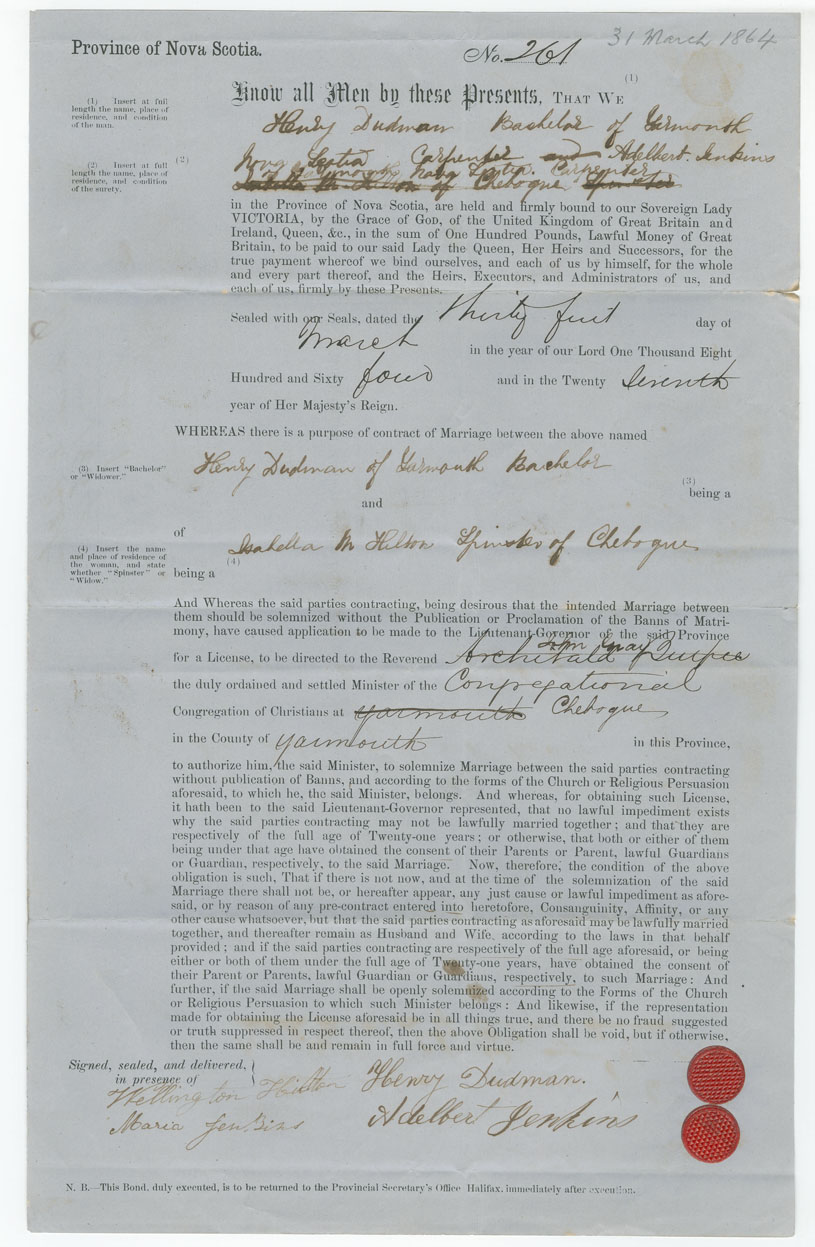 Province of Nova Scotia.
No. 261
31 March 1864
(1) Insert at full
length the name, place of
residence, and condition
of the man.
Know all Men by these Presents, THAT WE (1)
Henry Dudman Bachelor of Yarmouth
(2) Insert at full
length the name, place of
residence, and condition
of the surety.
(2)
Nova Scotia Carpenter and Adelbert Jenkins
of Yarmouth Nova Scotia. Carpenter
Isabella M Hilton of Chebogue Spinster
in the Province of Nova Scotia, are held and firmly bound to our Sovereign Lady
VICTORIA, by the Grace of GOD, of the United Kingdom of Great Britain and
Ireland, Queen, &c., in the sum of One Hundred Pounds, Lawful Money of Great
Britain, to be paid to our said Lady the Queen, Her Heirs and Successors, for the
true payment whereof we bind ourselves, and each of us by himself, for the whole
and every part thereof, and the Heirs, Executors, and Administrators of us, and
each of us, firmly by these Presents.
Sealed with our Seals, dated the thirty first day of
March in the year of our Lord One Thousand Eight
Hundred and Sixty four and in the Twenty Seventh
year of Her Majesty's Reign.
WHEREAS there is a purpose of contract of Marriage between the above named
(3) Insert "Bachelor"
or "Widower."
Henry Dudman of Yarmouth Bachelor
(3)
being a
and
of
(4) Insert the name
and place of residence of
the woman, and state
whether "Spinster" or
"Widow."
Isabella M Hilton Spinster of Chebogue
(4)
being a
And Whereas the said parties contracting, being desirous that the intended Marriage between
them should be solemnized without the Publication or Proclamation of the Banns of Matri-
mony, have caused application to be made to the Lieutenant-Governor of the said Province
John Gray
for a License, to be directed to the Reverend Archibald
the duly ordained and settled Minister of the Congregational
Congregation of Christians at Yarmouth Chebogue
in the County of Yarmouth in this Province,
to authorize him, the said Minister, to solemnize Marriage between the said parties contracting
without publication of Banns, and according to the forms of the Church or Religious Persuasion
aforesaid, to which he, the said Minister, belongs. And whereas, for obtaining such License,
it hath been to the said Lieutenant-Governor represented, that no lawful impediment exists
why the said parties contracting may not be lawfully married together; and that they are
respectively of the full age of Twenty-one years; or otherwise, that both or either of them
being under that age have obtained the consent of their Parents or Parent, lawful Guardians
or Guardian, respectively, to the said Marriage. Now, therefore, the condition of the above
obligation is such, That if there is not now, and at the time of the solemnization of the said
Marriage there shall not be, or hereafter appear, any just cause or lawful impediment as afore-
said, or by reason of any pre-contract entered into heretofore, Consanguinity, Affinity, or any
other cause whatsoever, but that the said parties contracting as aforesaid may be lawfully married
together, and thereafter remain as Husband and Wife, according to the laws in that behalf
provided; and if the said parties contracting are respectively of the full age aforesaid, or being
either or both of them under the full age of Twenty-one years, have obtained the consent of
their Parent or Parents, lawful Guardian or Guardians, respectively, to such Marriage: And
further, if the said Marriage shall be openly solemnized according to the Forms of the Church
or Religious Persuasion to which such Minister belongs: And likewise, if the representation
made for obtaining the License aforesaid be in all things true, and there be no fraud suggested
or truth suppressed in respect thereof, then the above Obligation shall be void, but if otherwise,
then the same shall be and remain in full force and virtue.
Signed, sealed, and delivered,
in presence of
Wellington Hilton Henry Dudman.
Maria Jenkins Adelbert Jenkins
N. B.—This Bond, duly executed, is to be returned to the Provincial Secretary's Office Halifax, immediately after execution.